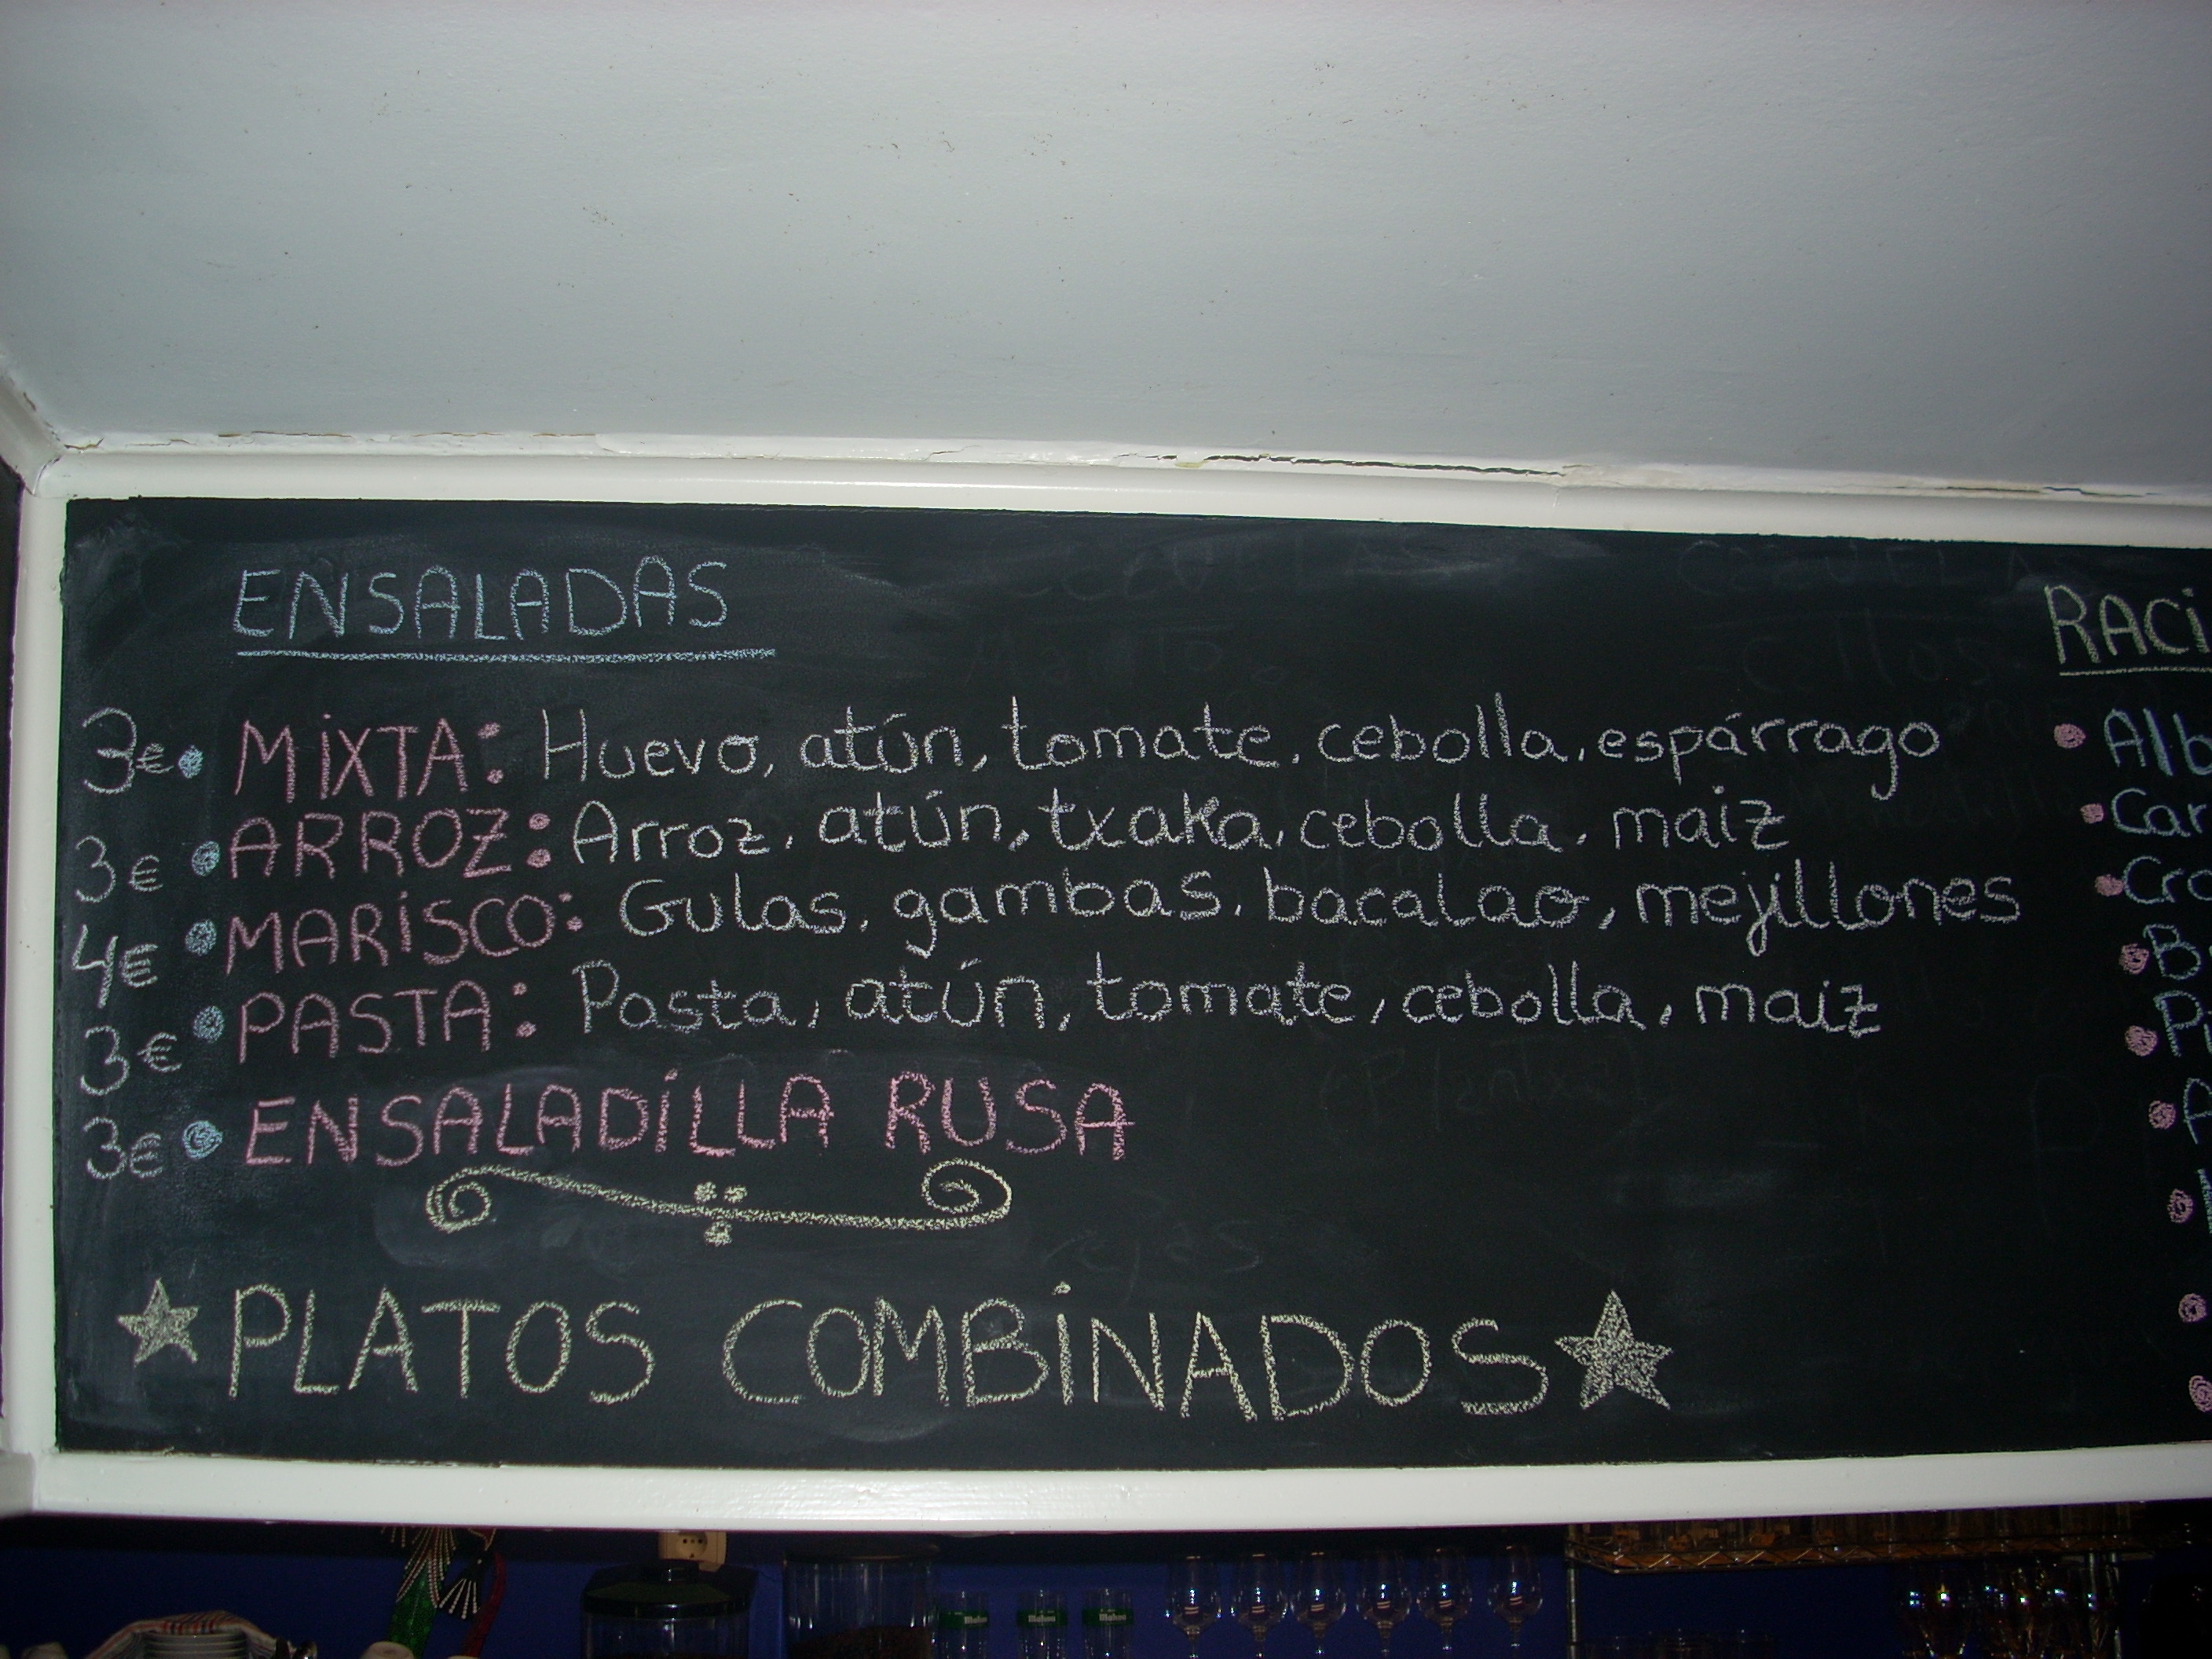 ENSALADAS
3€ • MIXTA: Huevo, atún, tomate, cebolla, espárrago
3€ • ARROZ: Arroz, atún, txaka, cebolla, maiz
4€ • MARISCO: Gulas, gambas, bacalao, mejillones
3€ • PASTA: Pasta, atún, tomate, cebolla, maiz
3€ • ENSALADILLA RUSA
★ PLATOS COMBINADOS ★
RACI
• Alb
• Car
• Cro
Mahou Mahou Mahou